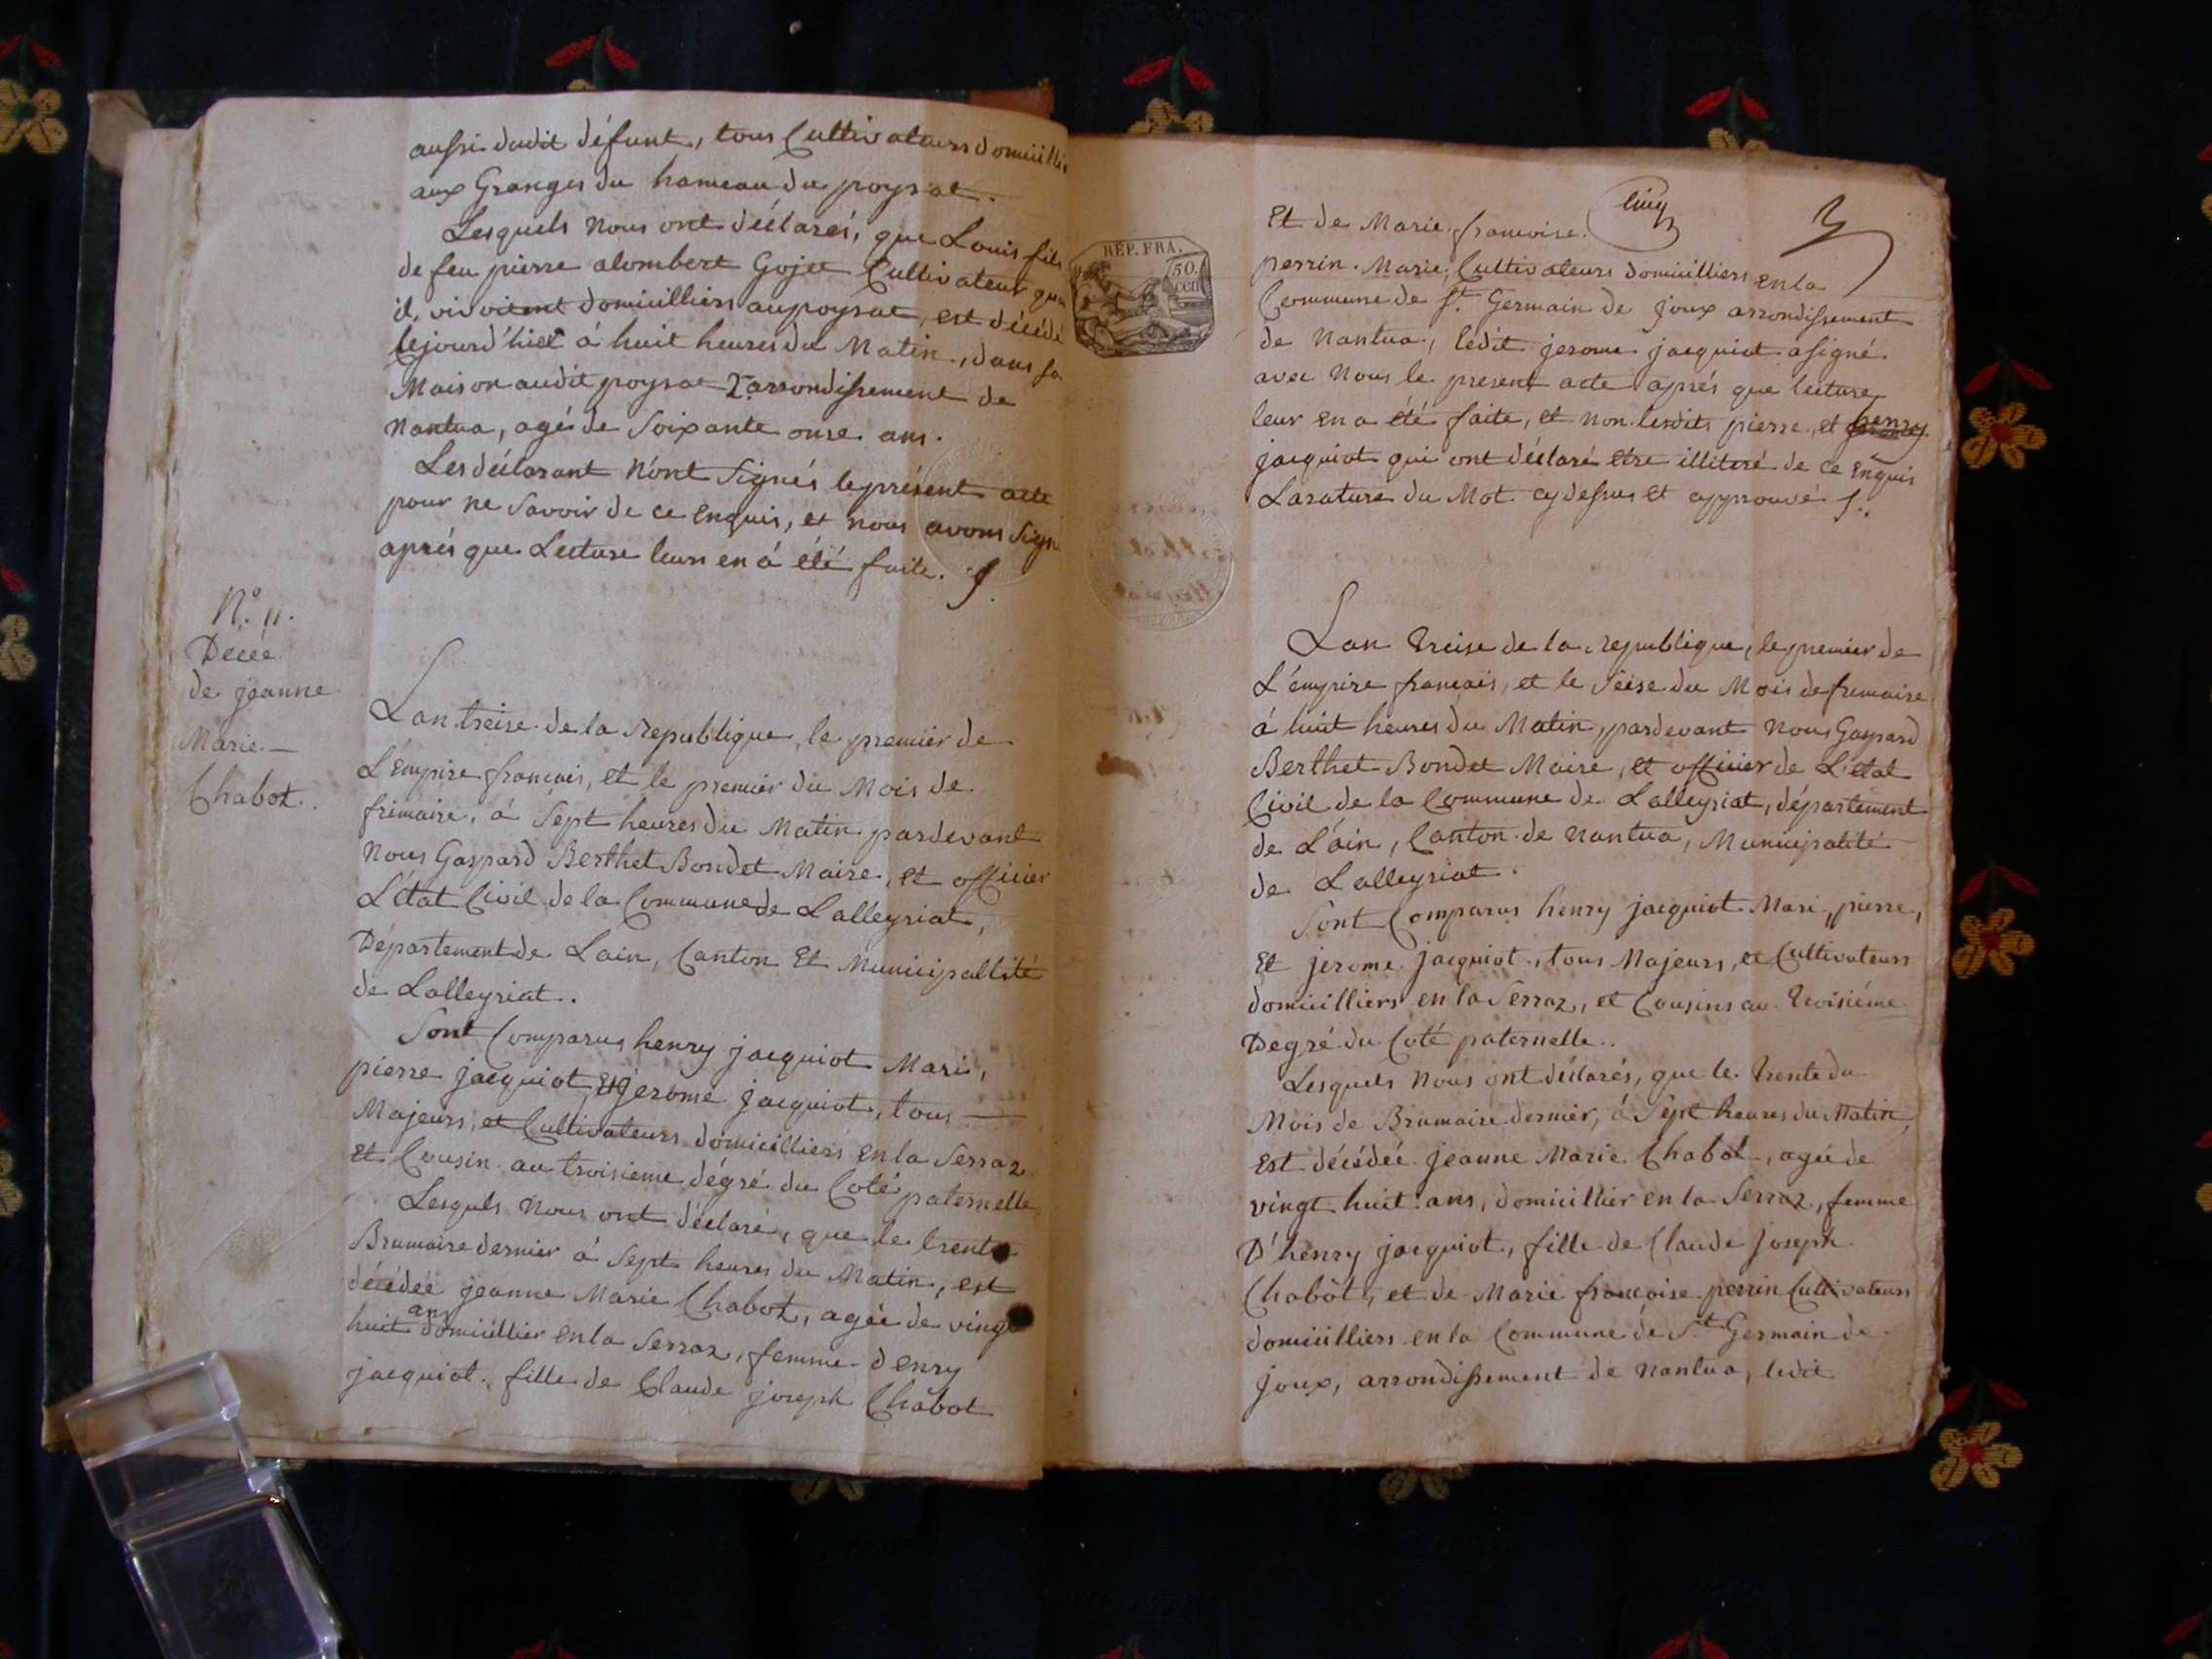 aussi dudit défunt, tous Cultivateurs domicillie
aux Granges du hameau du poysat.
Lesquels nous ont déclarés, que Louis fils
de feu pierre alombert Gojet Cultivateur quan
il, vivoitent domicilliers au poysat, est décédé
Cejourd'hier à huit heures du Matin, dans sa
Maison audit poysat arrondissement de
Nantua, agé de Soixante onse ans.
Les déclarant N'ont Signés le présent acte
pour ne Savoir de ce enquis, et nous avons Sign
après que Lecture leurs en á été faite.
N.° 11.
Décée
de jeanne
Marie
Chabot.
Lan treise de la republique, le premier de
L'émpire français, et le premier du Mois de
frimaire, á Sept heures du Matin pardevant
Nous Gaspard Berthet Bondet Maire, et officier
L'état Civil de la Commune de Lalleyriat,
Département de Lain, Canton Et Municipallité
de Lalleyriat.
Sont Comparus henry jacquiot Mari,
pierre jacquiot, Et jerome jacquiot, tous
Majeurs, et Cultivateurs domicilliers en la Serraz
et Cousin au troisieme dégré du Coté paternelle
Lesquls nous ont déclaré, que le trente
Brumaire dernier á Sept heures du Matin, est
décédéé jeanne Marie Chabot, agéé de vingt
huit ans domicillier en la Serraz, femme d'enry
jacquiot, fille de Claude joseph Chabot
cinq
RÉP. FRA.
50.
cen
Et de Marie francoise
perrin. Marie, Cultivateurs domicilliers en la
Commune de S.t Germain de joux arrondissement
de Nantua, ledit jerome jacquiot a signé
avec Nous le present acte aprés que lecture
leur en a été faite, et non lesdits pierre, et henry
jacquiot qui ont déclaré etre illiteré de ce Enquis
La rature du Mot cy dessus et approuvé
Lan treise de la republique, le premier de
L'émpire français, et le Seise du Mois de frimaire
á huit heures du Matin, pardevant Nous Gaspard
Berthet Bondet Maire, et officier de L'état
Civil de la Commune de Lalleyriat, département
de L'ain, Canton de Nantua, Municipalité
de Lalleyriat.
Sont Comparus henry jacquiot Mari, pierre,
Et jerome jacquiot, tous Majeurs, et Cultivateurs
domicilliers en la Serraz, et Cousins au troisiéme
Degré du Coté paternelle.
Lesquels Nous ont déclarés, que le trente du
Mois de Brumaire dernier, á Sept heures du Matin,
Est décédéé jeanne Marie Chabot, agéé de
vingt huit ans, domicillier en la Serraz, femme
D'henry jacquiot, fille de Claude joseph
Chabot, et de Marie francoise perrin Cultivateurs
domicilliers en la Commune de S.t Germain de
joux, arrondissement de Nantua, ledit